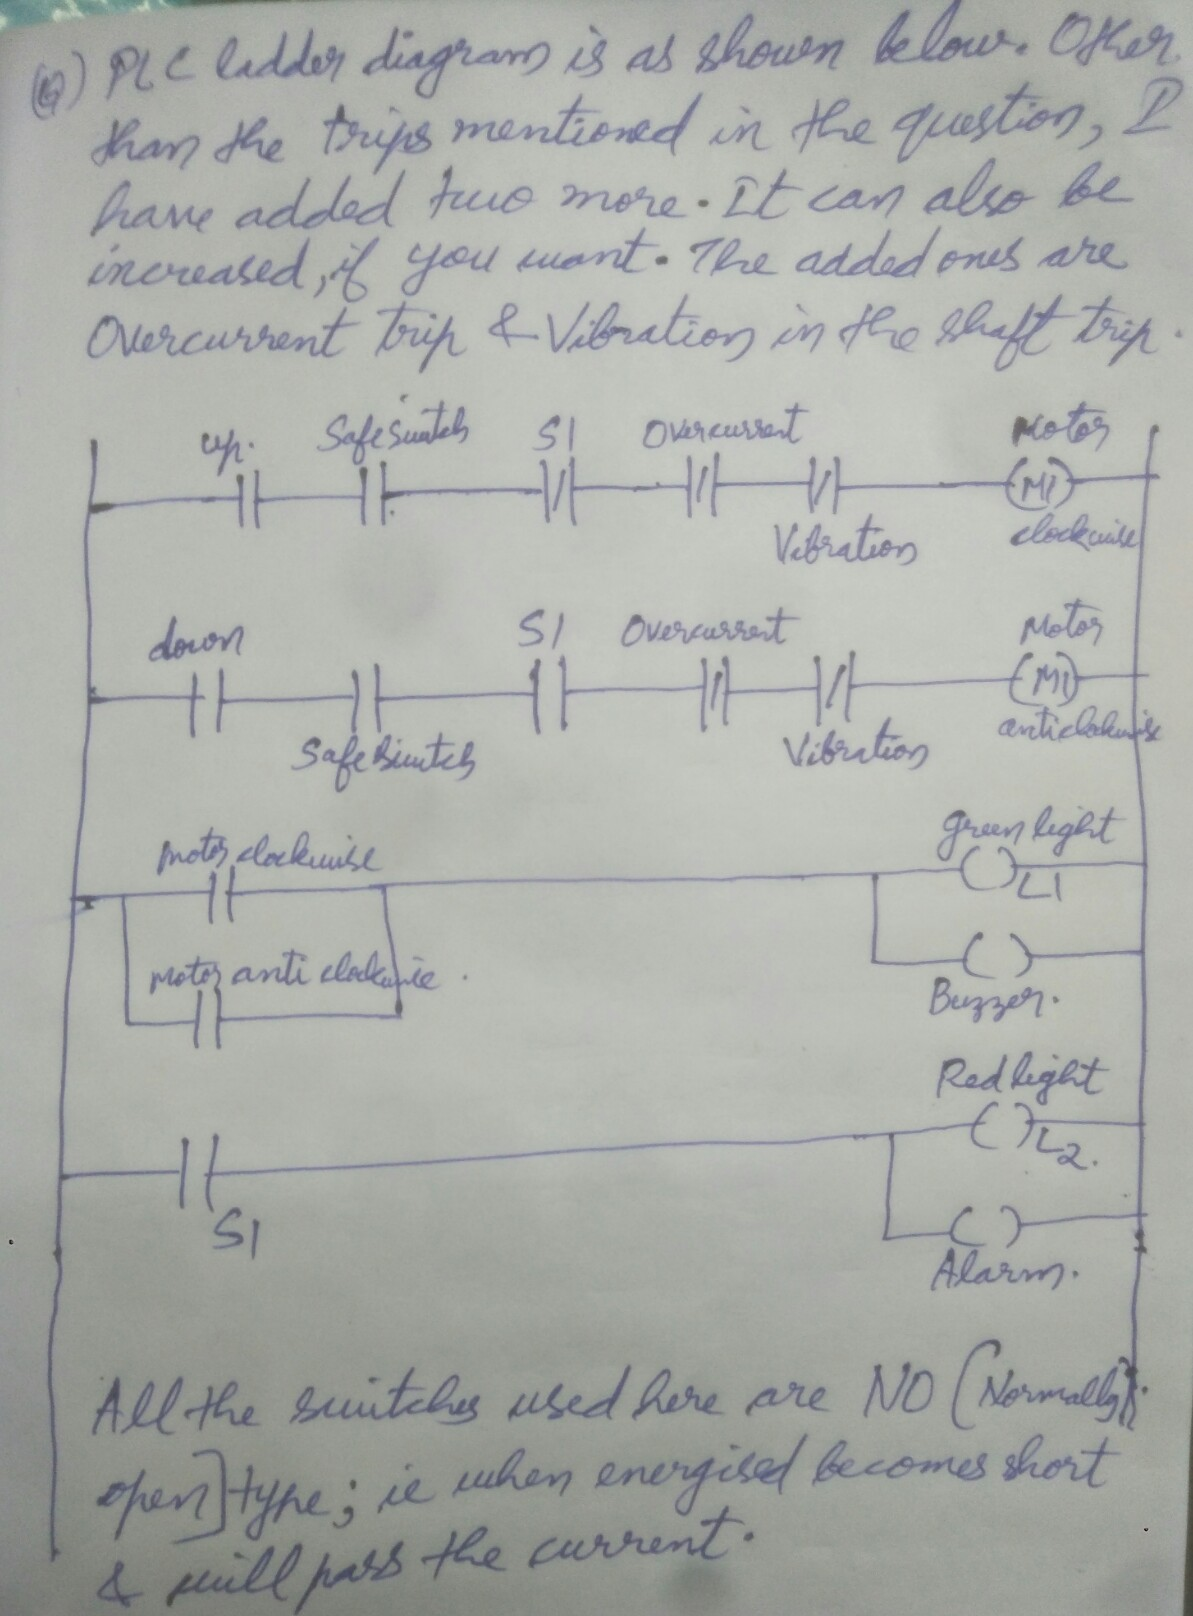 (Q) PLC ladder diagram is as shown below. Other
than the trips mentioned in the question, I
have added two more. It can also be
increased, if you want. The added ones are
Overcurrent trip & Vibration in the shaft trip.
up. Safe Switch S1 Overcurrent Motor
(M1)
Vibration clockwise
down S1 Overcurrent Motor
(M1)
Safe Switch Vibration anticlockwise
Motor clockwise green light
L1
Motor anti clockwise.
Buzzer.
Red light
L2.
S1
Alarm.
All the switches used here are NO (Normally
open) type; ie when energised becomes short
& will pass the current.